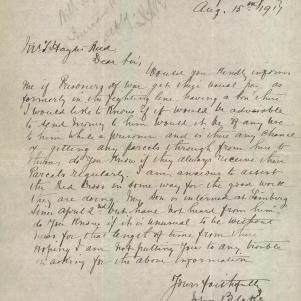 Aug. 15th 1917
Dear Sir,
Would you kindly inform
me if Prisoners of War get their usual pay as
formerly in the fighting line, having a son there
I would like to know if it would be advisable
to send money to him would it be of any use
to him while a prisoner and is there any chance
of getting any parcels through from here to
them do you know if they always receive their
Parcels regularly. I am anxious to assist
the Red Cross in some way for the good work
they are doing. My son is interned at Limburg
since April 2nd but have not heard from him,
do you know if it is unusual to be without
news for that length of time from there
Hoping I am not putting you to any trouble
in asking for the above information
Yours faithfully